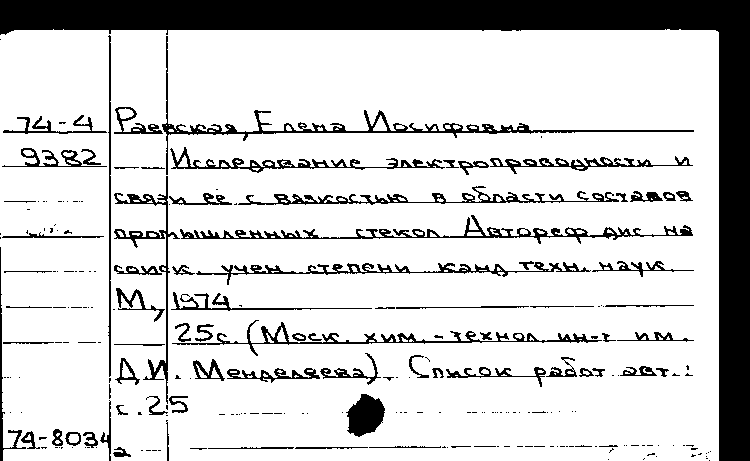 74-4 Раевская, Елена Иосифовна
9382 Исследование электропроводности и
связи ее с вязкостью в области составов
промышленных стекол. Автореф. дис. на
соиск. учен. степени канд. техн. наук.
М., 1974.
25с. (Моск. хим.-технол. ин-т им.
Д.И. Менделеева). Список работ авт.:
с.25
74-8034